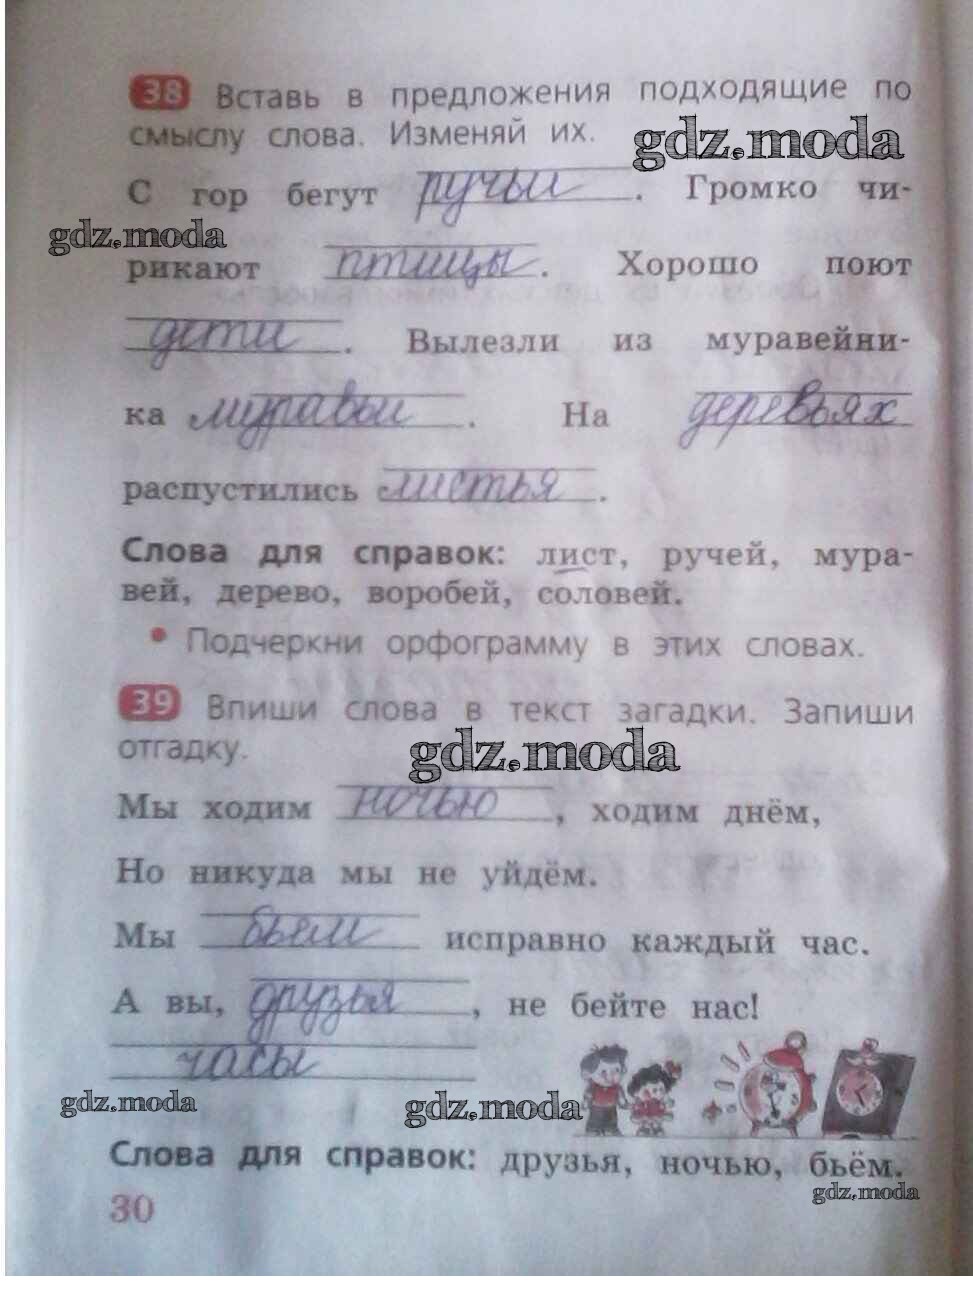 38 Вставь в предложения подходящие по
смыслу слова. Изменяй их.
gdz.moda
С гор бегут ручьи . Громко чи-
gdz.moda
рикают птицы . Хорошо поют
дети . Вылезли из муравейни-
ка муравьи . На деревьях
распустились листья .
Слова для справок: лист, ручей, мура-
вей, дерево, воробей, соловей.
• Подчеркни орфограмму в этих словах.
39 Впиши слова в текст загадки. Запиши
отгадку.
gdz.moda
Мы ходим ночью , ходим днём,
Но никуда мы не уйдём.
Мы бьем исправно каждый час.
А вы, друзья , не бейте нас!
часы
gdz.moda
gdz.moda
Слова для справок: друзья, ночью, бьём.
gdz.moda
30